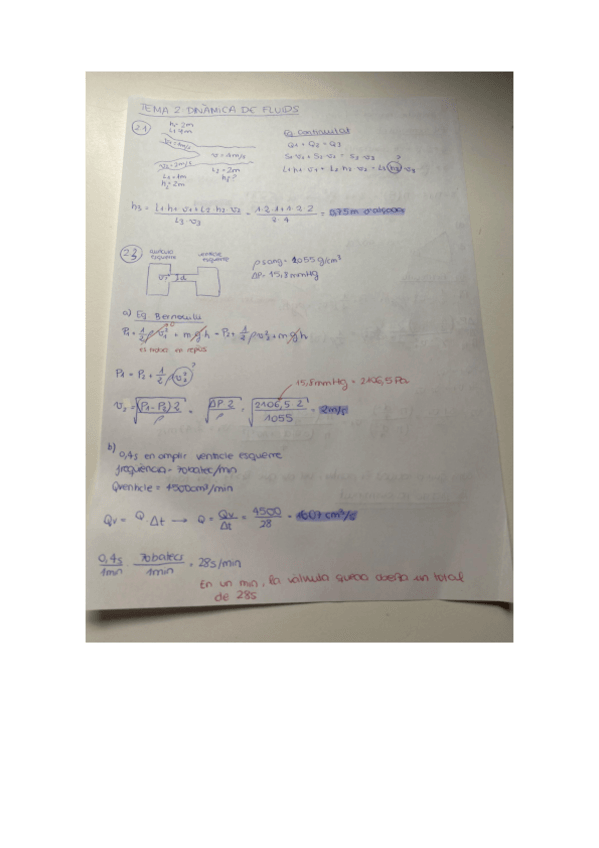 TEMA 2 DINÀMICA DE FLUIDS
2.1
h1 = 2m
v = 4m/s
h2 = 2m
h3?
L2 = 1m
h2 = 2m
Eq Continuitat
Q1 + Q2 = Q3
S1 v1 + S2 v2 = S3 v3
L1 h1 v1 + L2 h2 v2 = L3 h3 v3
?
h3 = L1 h1 v1 + L2 h2 v2 / L3 v3
= 0,75m
2.2
aurícula esquerre
ventricle esquerre
ρ sang = 1055 g/cm³
ΔP = 15,8 mmHg
a) Eq Bernoulli
P1 + 1/2 ρ v1² + m g h = P2 + 1/2 ρ v2² + m g h
0
es troba en repòs
P1 = P2 + 1/2 ρ v2²
?
15,8 mmHg = 2106,5 Pa
v2 = √(P1 - P2) 2 / ρ = √ΔP 2 / ρ = √2106,5 2 / 1055 = 2m/s
b)
0,4s en omplir ventricle esquerre
freqüència = 70 batec/min
Qventricle = 4500 cm³/min
Qv = Q Δt → Q = Qv / Δt = 4500 / 28 = 160,7 cm³/s
0,4s / 1min 70 batecs / 1min = 28s/min
En un min, la vàlvula queda oberta un total
de 28s